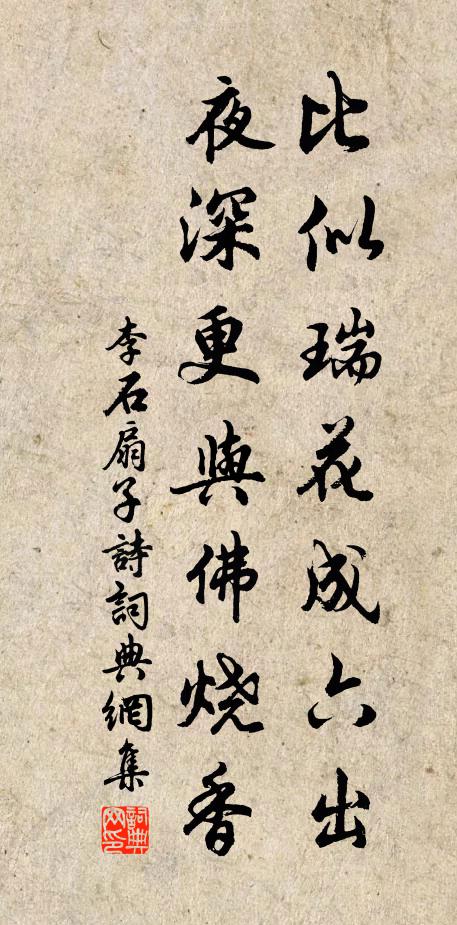 比似瑞花成六出
夜深更與佛烧香
李石扇子詩詞典網集
詞典网印